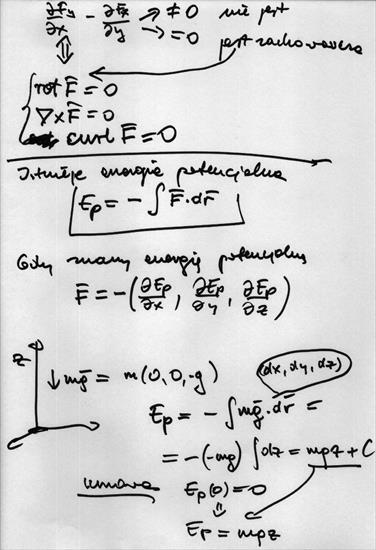 ∂Fy/∂x - ∂Fx/∂y → ≠ 0 nie jest
→ = 0 jest zachowawcza
⇕
rot F̄ = 0
∇ × F̄ = 0
curl F̄ = 0
Istnieje energia potencjalna
Ep = - ∫ F̄ · dr̄
Gdy mamy energię potencjalną
F̄ = -(∂Ep/∂x, ∂Ep/∂y, ∂Ep/∂z)
z ↓ mḡ = m(0, 0, -g) (dx, dy, dz)
Ep = - ∫ mḡ · dr̄ =
= -(-mg) ∫ dz = mgz + C
umowa Ep(0) = 0
⇓
Ep = mgz